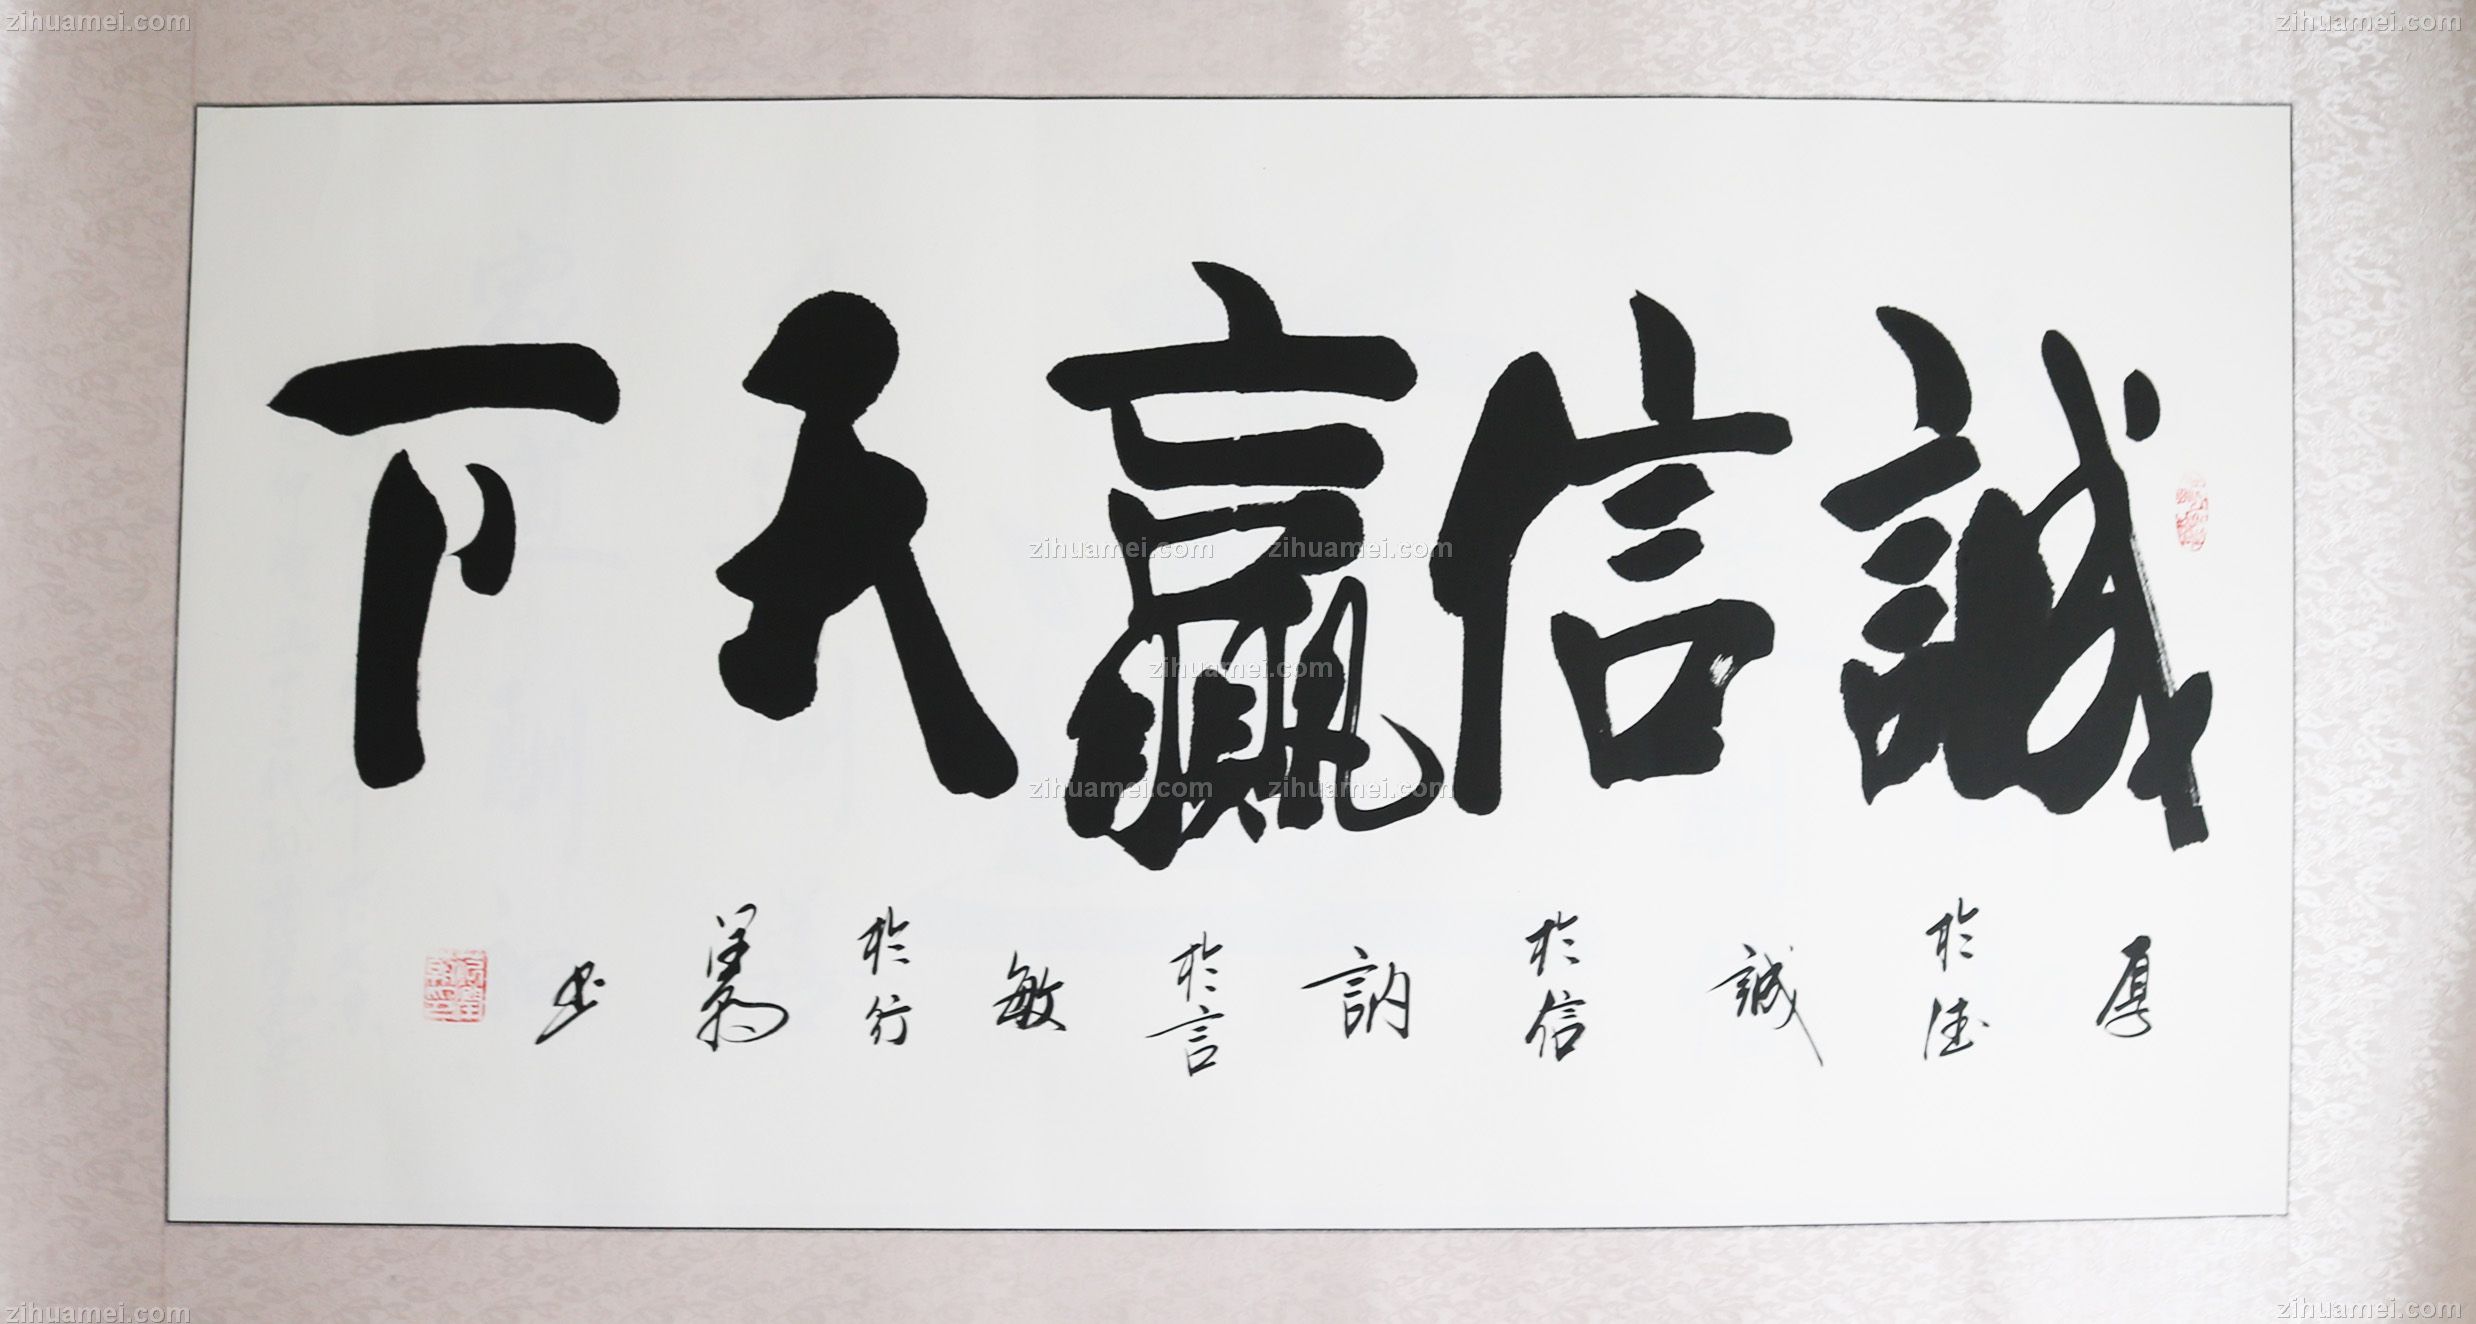 誠信贏天下
厚於德誠於信訥於言敏於行
書
zihuamei.com
zihuamei.com
zihuamei.com
zihuamei.com
zihuamei.com
zihuamei.com
zihuamei.com
zihuamei.com
zihuamei.com